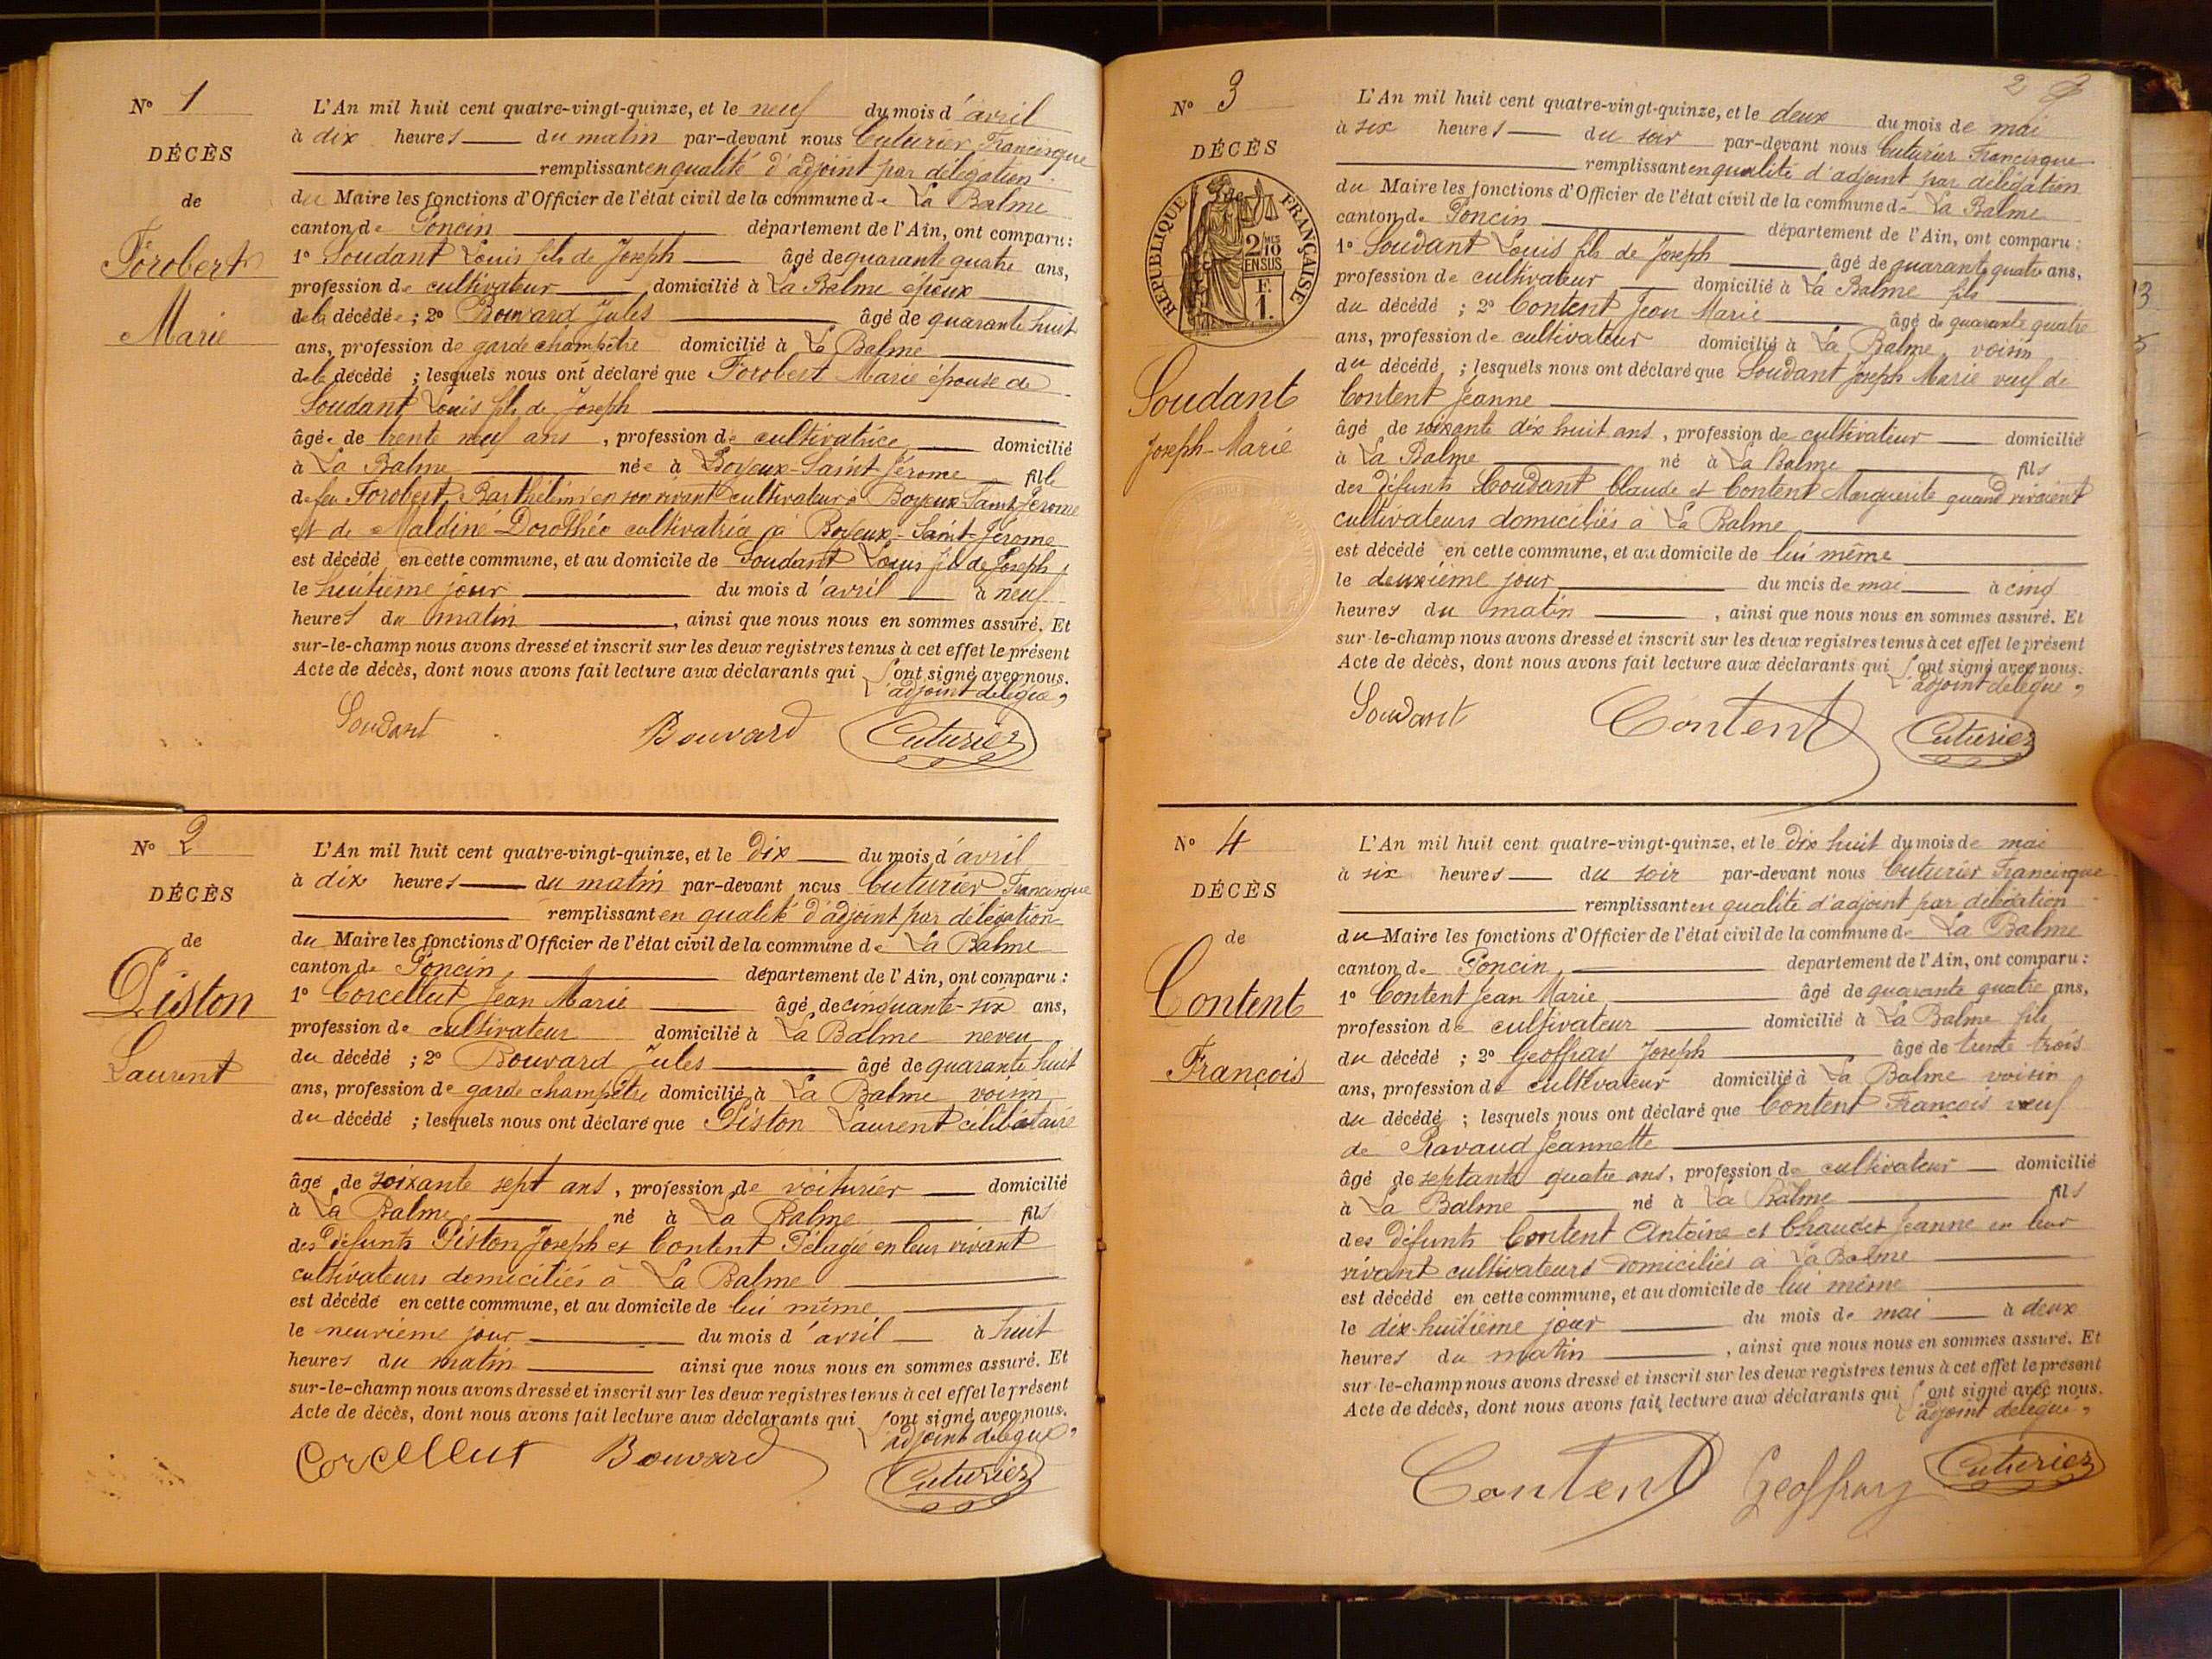 N° 1
DÉCÈS
de
Forobert
Marie
L'An mil huit cent quatre-vingt-quinze, et le neuf du mois d'avril
à dix heures du matin par-devant nous Cuturier Francisque
remplissant en qualité d'adjoint par délégation
du Maire les fonctions d'Officier de l'état civil de la commune de La Balme
canton de Poncin département de l'Ain, ont comparu :
1° Soudant Louis fils de Joseph âgé de quarante quatre ans,
profession de cultivateur domicilié à La Balme époux
de la décédée ; 2° Bouvard Jules âgé de quarante huit
ans, profession de garde champêtre domicilié à La Balme
de la décédé ; lesquels nous ont déclaré que Forobert Marie épouse de
Soudant Louis fils de Joseph
âgée de trente neuf ans, profession de cultivatrice domicilié
à La Balme née à Boyeux-Saint-Jérome fille
de feu Forobert Barthélimi en son vivant cultivateur à Boyeux Saint Jérome
et de Maldiné Dorothée cultivatrice à Boyeux-Saint-Jérome
est décédé en cette commune, et au domicile de Soudant Louis fils de Joseph,
le huitième jour du mois d'avril à neuf
heures du matin, ainsi que nous nous en sommes assuré. Et
sur-le-champ nous avons dressé et inscrit sur les deux registres tenus à cet effet le présent
Acte de décès, dont nous avons fait lecture aux déclarants qui ont signé avec nous.
L'adjoint délégué,
Soudant Bouvard Cuturier
N° 2
DÉCÈS
de
Piston
Laurent
L'An mil huit cent quatre-vingt-quinze, et le dix du mois d'avril
à dix heures du matin par-devant nous Cuturier Francisque
remplissant en qualité d'adjoint par délégation
du Maire les fonctions d'Officier de l'état civil de la commune de La Balme
canton de Poncin, département de l'Ain, ont comparu :
1° Corcellut Jean Marie âgé de cinquante-six ans,
profession de cultivateur domicilié à La Balme neveu
du décédé ; 2° Bouvard Jules âgé de quarante huit
ans, profession de garde champêtre domicilié à La Balme voisin
du décédé ; lesquels nous ont déclaré que Piston Laurent célibataire
âgé de soixante sept ans, profession de voiturier domicilié
à La Balme né à La Balme fils
des défunts Piston Joseph et Content Pélagie en leur vivant
cultivateurs domiciliés à La Balme
est décédé en cette commune, et au domicile de lui même
le neuvième jour du mois d'avril à huit
heures du matin ainsi que nous nous en sommes assuré. Et
sur-le-champ nous avons dressé et inscrit sur les deux registres tenus à cet effet le présent
Acte de décès, dont nous avons fait lecture aux déclarants qui ont signé avec nous.
L'adjoint délégué,
Corcellut Bouvard Cuturier
2
N° 3
DÉCÈS
RÉPUBLIQUE FRANÇAISE
2/10 MES
EN SUS
F.
1.
Soudant
Joseph-Marie
L'An mil huit cent quatre-vingt-quinze, et le deux du mois de mai
à six heures du soir par-devant nous Cuturier Francisque
remplissant en qualité d'adjoint par délégation
du Maire les fonctions d'Officier de l'état civil de la commune de La Balme
canton de Poncin département de l'Ain, ont comparu :
1° Soudant Louis fils de Joseph âgé de quarante quatre ans,
profession de cultivateur domicilié à La Balme fils
du décédé ; 2° Content Jean Marie âgé de quarante quatre
ans, profession de cultivateur domicilié à La Balme, voisin
du décédé ; lesquels nous ont déclaré que Soudant Joseph Marie veuf de
Content Jeanne
âgé de soixante dix huit ans, profession de cultivateur domicilié
à La Balme né à La Balme fils
des défunts Soudant Claude et Content Marguerite quand vivaient
cultivateurs domiciliés à La Balme
est décédé en cette commune, et au domicile de lui même
le deuxième jour du mois de mai à cinq
heures du matin, ainsi que nous nous en sommes assuré. Et
sur-le-champ nous avons dressé et inscrit sur les deux registres tenus à cet effet le présent
Acte de décès, dont nous avons fait lecture aux déclarants qui ont signé avec nous.
L'adjoint délégué,
Soudant Content Cuturier
N° 4
DÉCÈS
de
Content
François
L'An mil huit cent quatre-vingt-quinze, et le dix huit du mois de mai
à six heures du soir par-devant nous Cuturier Francisque
remplissant en qualité d'adjoint par délégation
du Maire les fonctions d'Officier de l'état civil de la commune de La Balme
canton de Poncin, département de l'Ain, ont comparu :
1° Content Jean Marie âgé de quarante quatre ans,
profession de cultivateur domicilié à La Balme fils
du décédé ; 2° Geoffray Joseph âgé de trente trois
ans, profession de cultivateur domicilié à La Balme voisin
du décédé ; lesquels nous ont déclaré que Content François veuf
de Ravaud Jeannette
âgé de septante quatre ans, profession de cultivateur domicilié
à La Balme né à La Balme fils
des défunts Content Antoine et Chaudet Jeanne en leur
vivant cultivateurs domiciliés à La Balme
est décédé en cette commune, et au domicile de lui même
le dix-huitième jour du mois de mai à deux
heures du matin, ainsi que nous nous en sommes assuré. Et
sur-le-champ nous avons dressé et inscrit sur les deux registres tenus à cet effet le présent
Acte de décès, dont nous avons fait lecture aux déclarants qui ont signé avec nous.
L'adjoint délégué,
Content Geoffray Cuturier